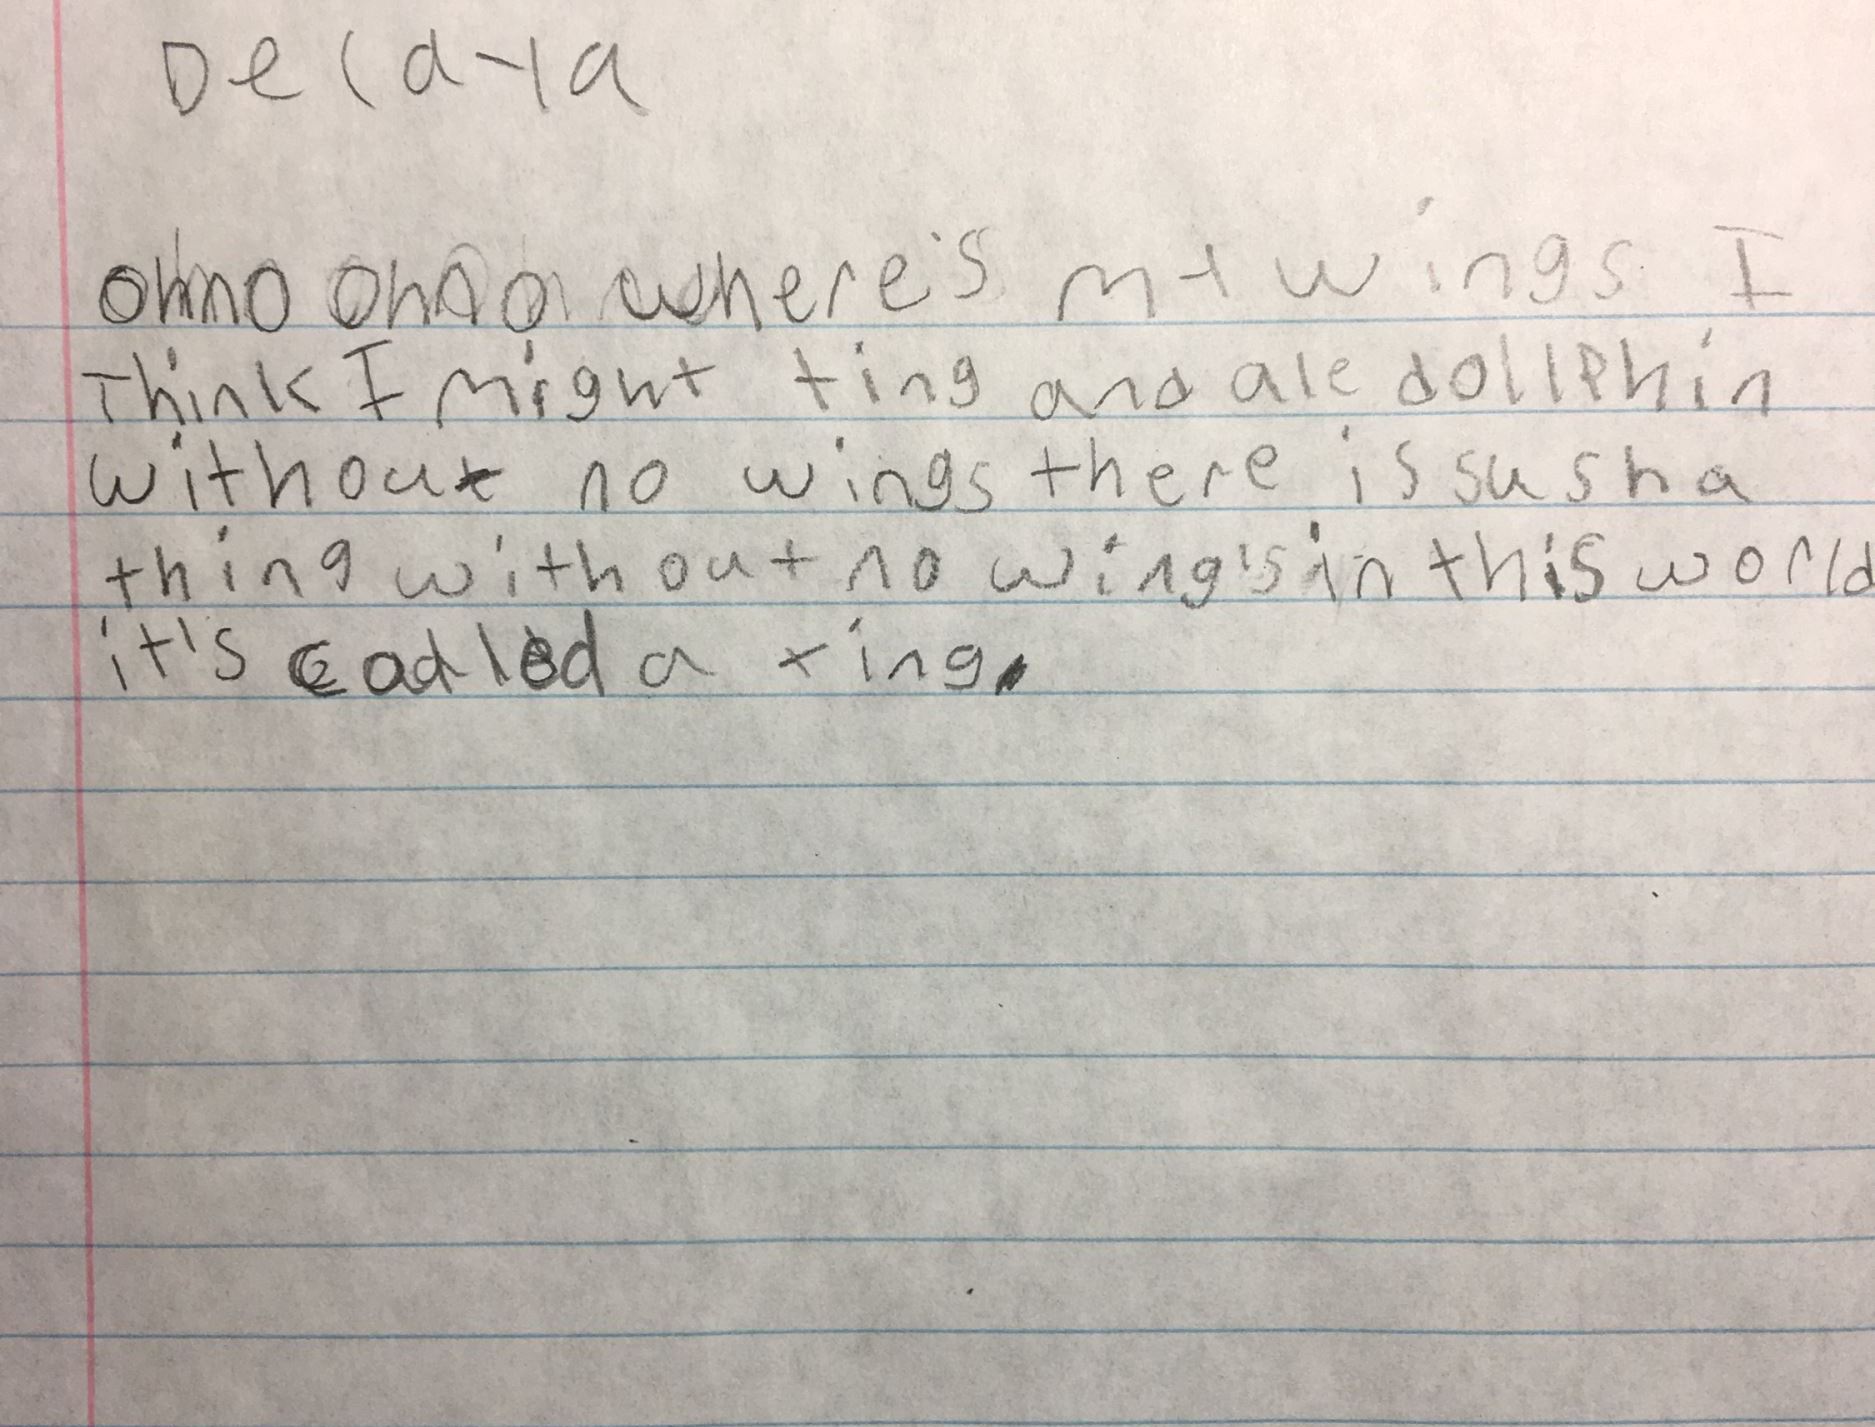 ohno ohno where's my wings I
Think I might ting and ale dollphin
without no wings there is sush a
thing without no wing's in this world
it's called a ting.